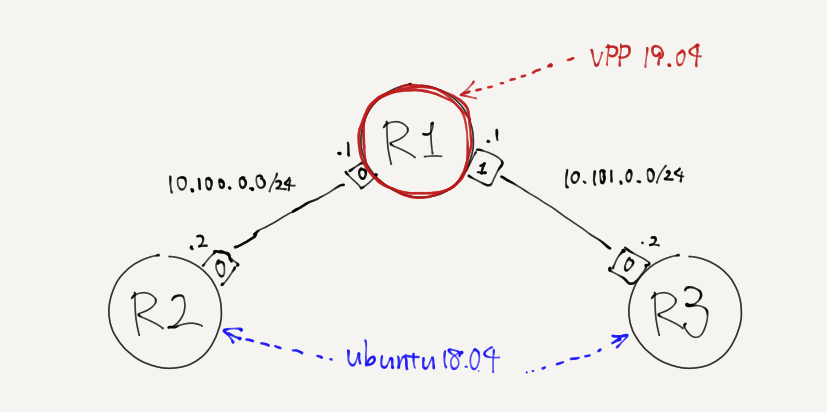 VPP 19.04
R1
.1
.1
0
1
10.100.0.0/24
10.101.0.0/24
.2
.2
0
0
R2
R3
ubuntu18.04